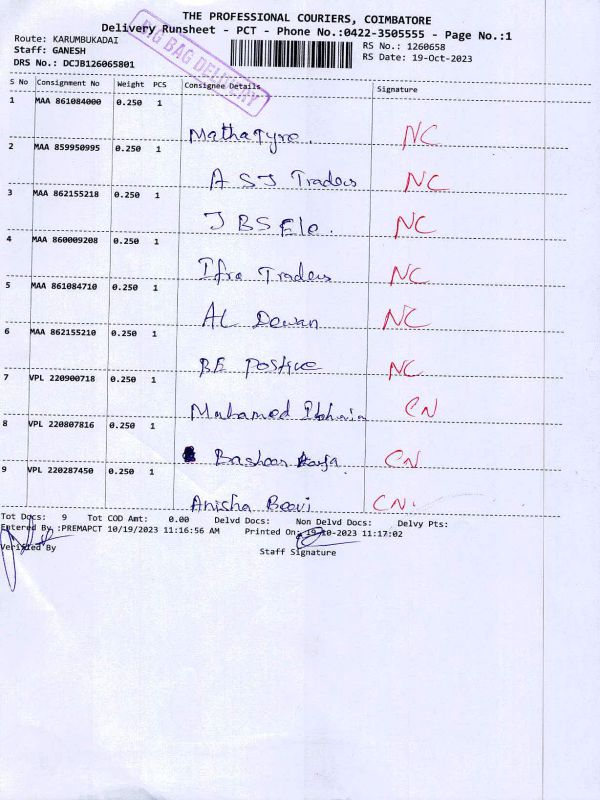 THE PROFESSIONAL COURIERS, COIMBATORE
Delivery Runsheet - PCT - Phone No.:0422-3505555 - Page No.:1
Route: KARUMBUKADAI
RS No.: 1260658
Staff: GANESH
RS Date: 19-Oct-2023
DRS No.: DCJB126065801
BIG BAG DELIVERY
S No Consignment No Weight PCS Consignee Details Signature
1 MAA 861084000 0.250 1
Matha Tyre. NC
2 MAA 859950995 0.250 1
A S J Traders NC
3 MAA 862155218 0.250 1
J B S Ele. NC
4 MAA 860009208 0.250 1
Ifra Traders NC
5 MAA 861084710 0.250 1
AL Dewan NC
6 MAA 862155210 0.250 1
BE Postive NC
7 VPL 220900718 0.250 1
Mohamed CN
8 VPL 220807816 0.250 1
Basheer CN
9 VPL 220287450 0.250 1
Anisha Beevi CN.
Tot Docs: 9 Tot COD Amt: 0.00 Delvd Docs: Non Delvd Docs: Delvy Pts:
Entered By :PREMAPCT 10/19/2023 11:16:56 AM Printed On: 19-10-2023 11:17:02
Verified By
Staff Signature